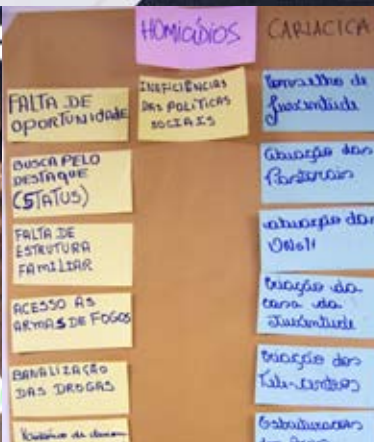 HOMICÍDIOS
CARIACICA
FALTA DE
OPORTUNIDADE
BUSCA PELO
DESTAQUE
(STATUS)
FALTA DE
ESTRUTURA
FAMILIAR
ACESSO AS
ARMAS DE FOGOS
BANALIZAÇÃO
DAS DROGAS
INEFICIÊNCIAS
DAS POLÍTICAS
SOCIAIS
Conselho de
Juventude
atuação das
Pastorais
atuação das
ONG's
criação da
casa da
Juventude
criação dos